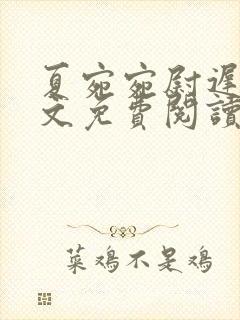 夏宛宛尉遲
文免費閱讀
菜鸡不是鸡